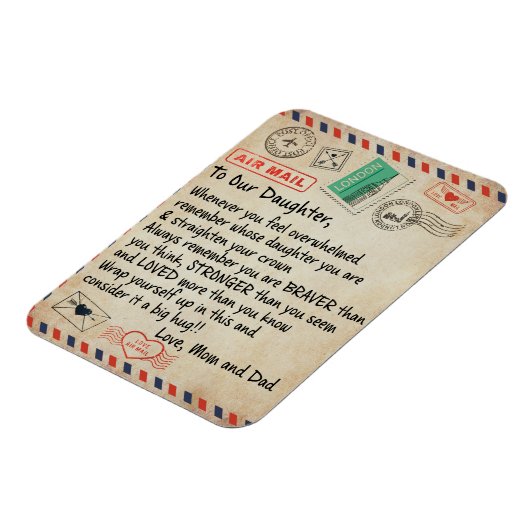 AIR MAIL
LONDON
To Our Daughter,
Whenever you feel overwhelmed
remember whose daughter you are
& straighten your crown
Always remember you are BRAVER than
you think, STRONGER than you seem
and LOVED more than you know
Wrap yourself up in this and
consider it a big hug!!
Love, Mom and Dad
LOVE
AIR MAIL